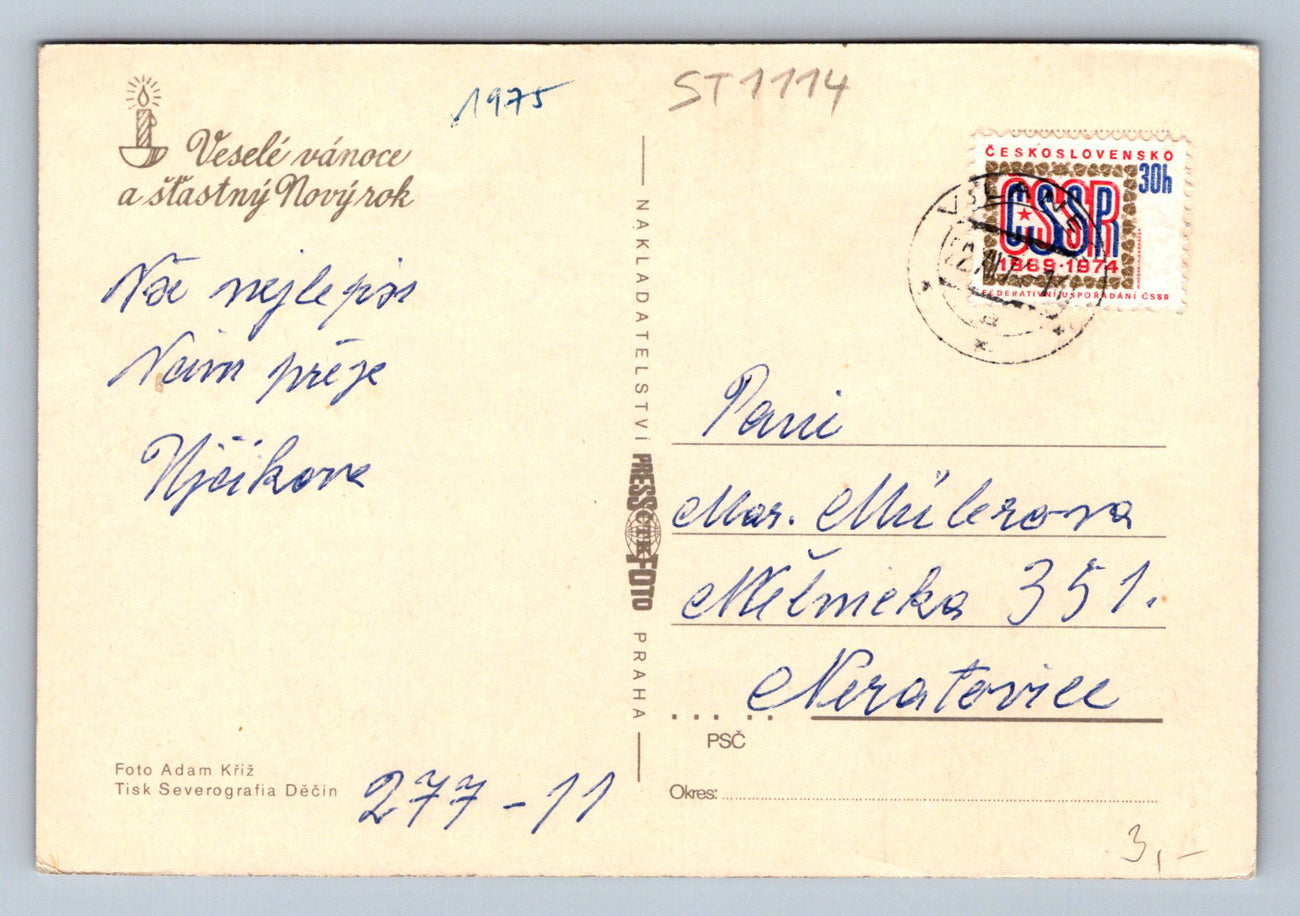 Veselé vánoce
a šťastný Nový rok
1975
Vše nejlepší
Vám přeje
ST 1114
ČESKOSLOVENSKO
30h
ČSSR
1969·1974
FEDERATIVNÍ USPOŘÁDÁNÍ ČSSR
NAKLADATELSTVÍ PRESSFOTO PRAHA
ČTK
Pani
Mar. Műlerova
Mělnická 351.
Neratovice
PSČ
Okres:
Foto Adam Kříž
Tisk Severografia Děčín
277-11
3,-